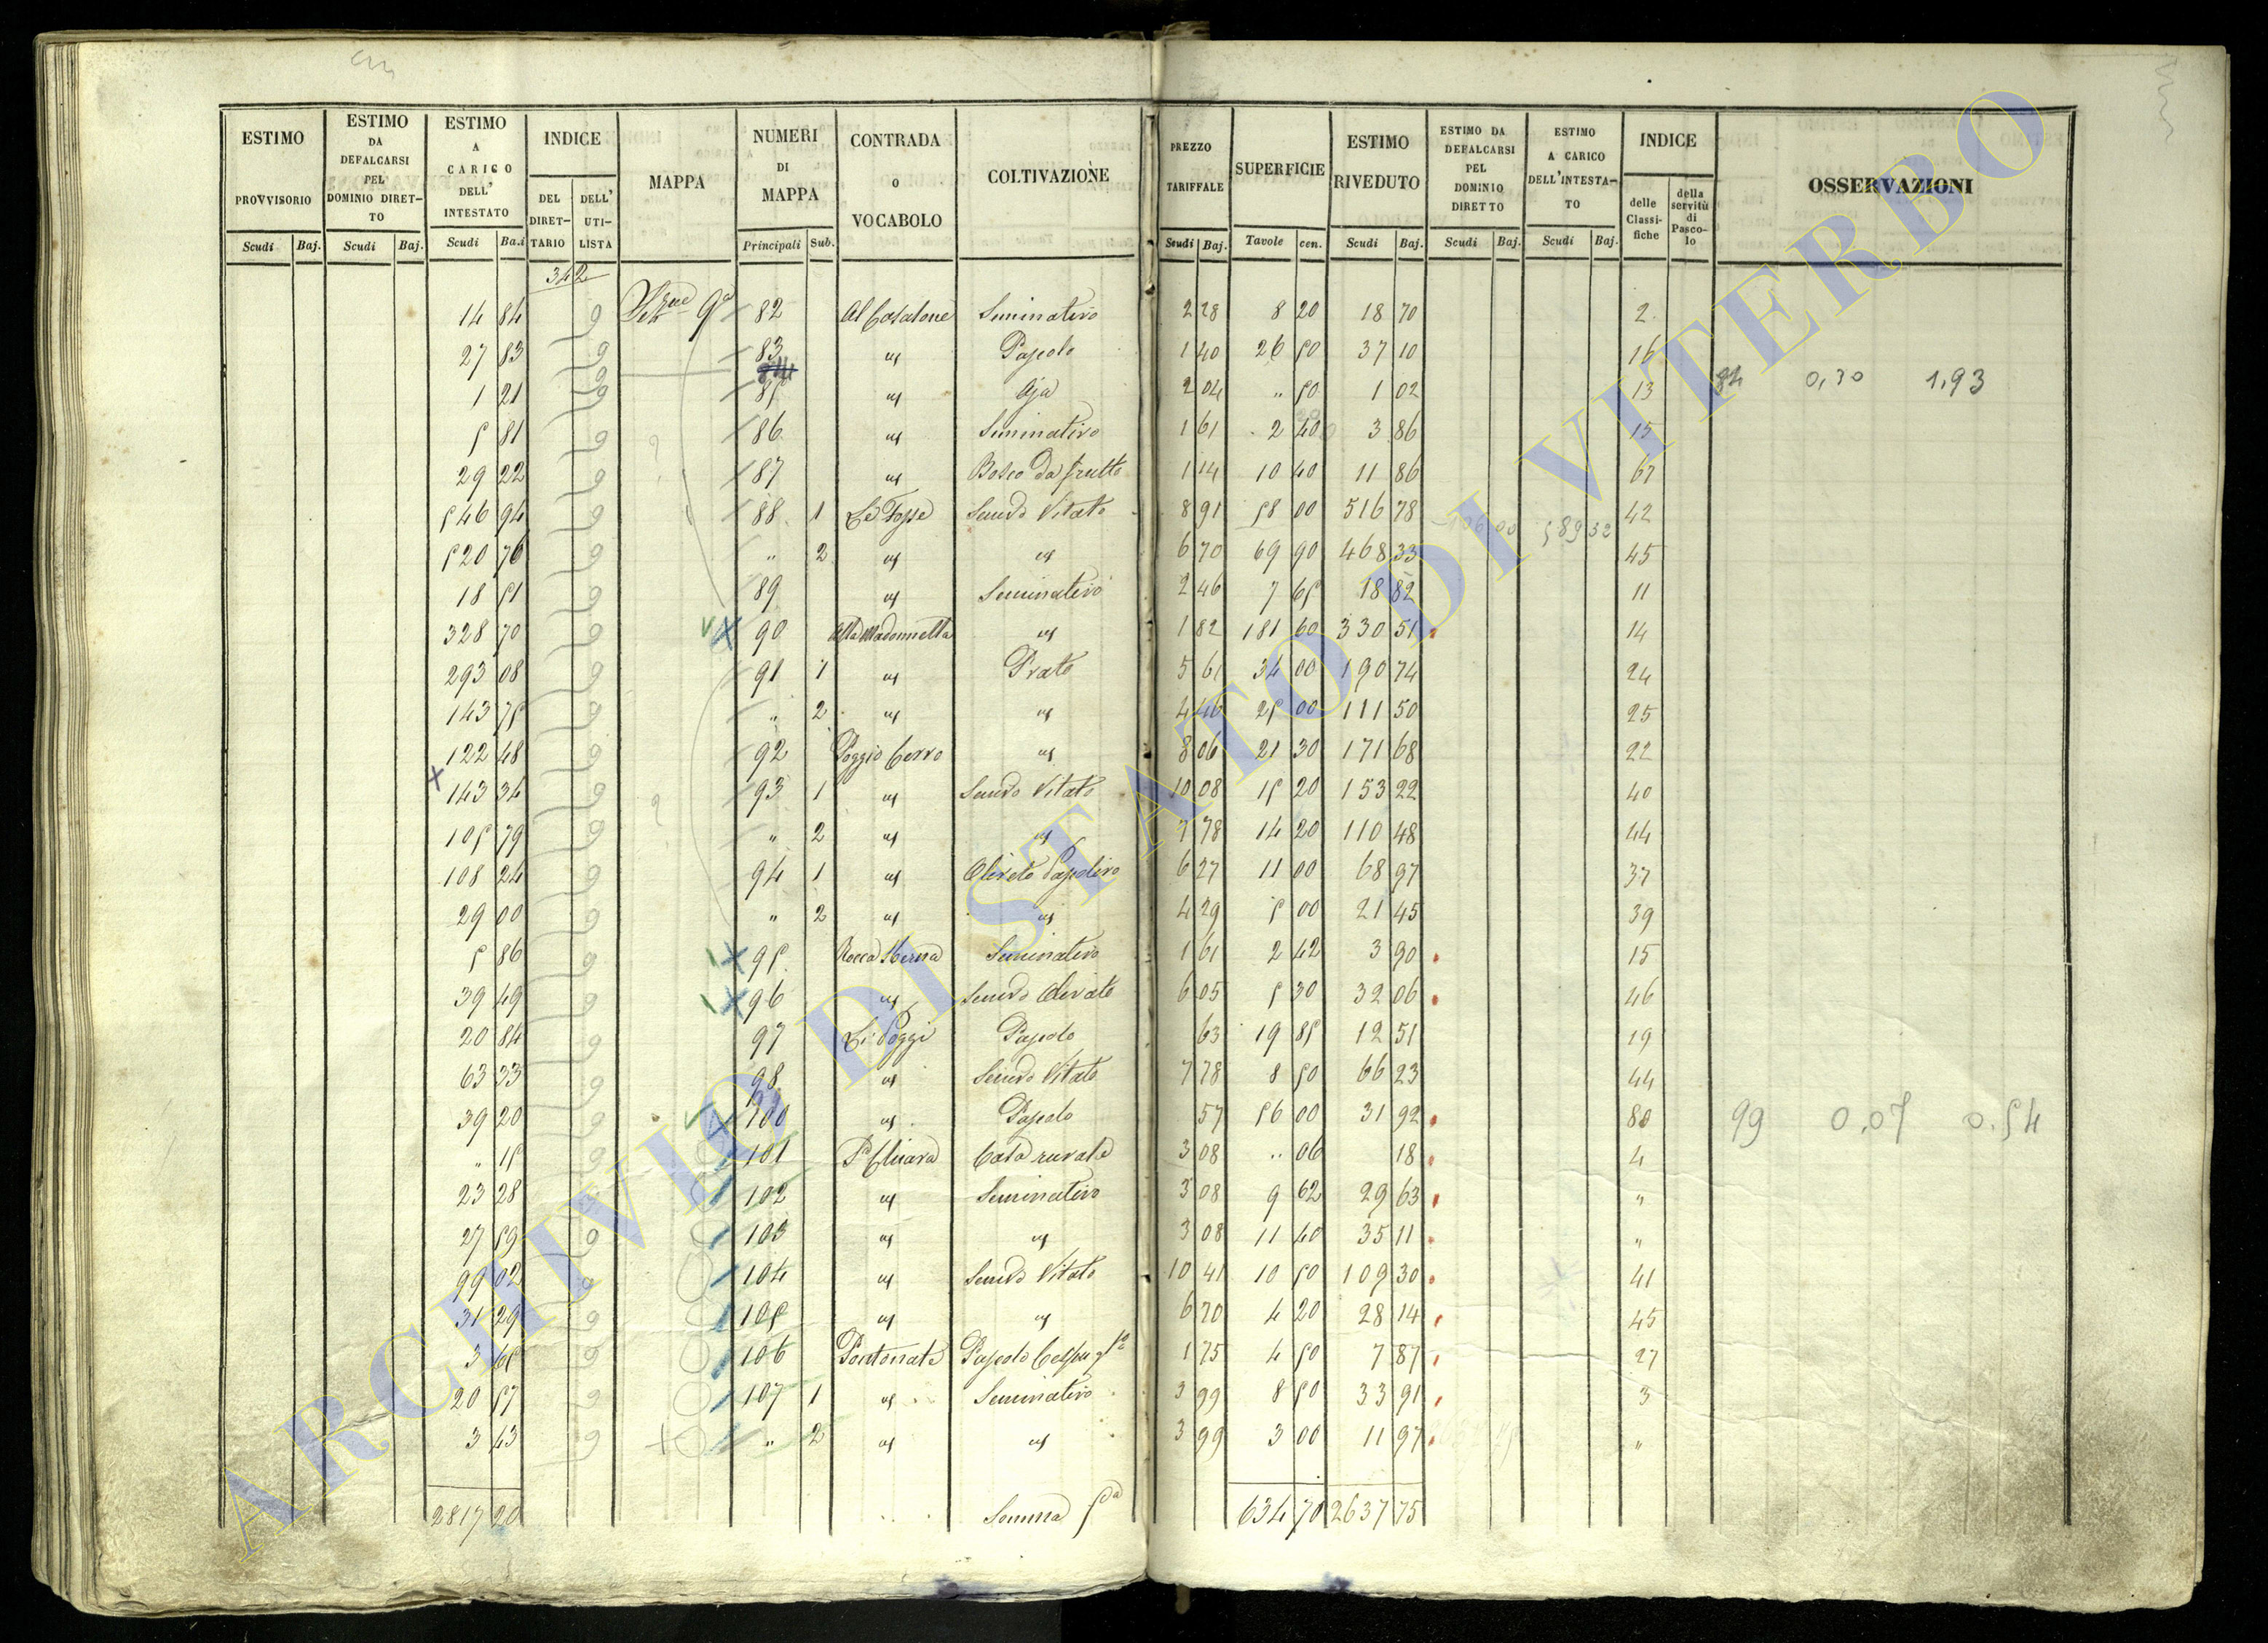 ESTIMO PROVVISORIO Scudi Baj.
ESTIMO DA DEFALCARSI PEL DOMINIO DIRETTO Scudi Baj.
ESTIMO A CARICO DELL' INTESTATO Scudi Ba.i
INDICE DEL DIRETTARIO DELL' UTILISTA
MAPPA
NUMERI DI MAPPA Principali Sub.
CONTRADA O VOCABOLO
COLTIVAZIONE
PREZZO TARIFFALE Scudi Baj.
SUPERFICIE Tavole cen.
ESTIMO RIVEDUTO Scudi Baj.
ESTIMO DA DEFALCARSI PEL DOMINIO DIRETTO Scudi Baj.
ESTIMO A CARICO DELL'INTESTATO Scudi Baj.
INDICE delle Classifiche della servitù di Pascolo
OSSERVAZIONI
342
14 84 9 9a 82 Al Casalone Seminativo 2 28 8 20 18 70 2
27 83 9 83 " Pascolo 1 40 26 50 37 10 16
1 21 9 85 " Aja 2 04 " 50 1 02 13 84 0,30 1,93
5 81 9 86 " Seminativo 1 61 2 40 3 86 15
29 22 9 87 " Bosco da frutto 1 14 10 40 11 86 67
546 94 9 88 1 Le Fosse Semvo Vitato 8 91 58 00 516 78 589 52 42
520 76 9 " 2 " " 6 70 69 90 468 33 45
18 51 9 89 " Seminativo 2 46 7 65 18 82 11
328 70 9 90 Alla Madonnella " 1 82 181 60 330 51 14
293 08 9 91 1 " Prato 5 61 34 00 190 74 24
143 75 9 " 2 " " 4 46 25 00 111 50 25
122 48 9 92 Poggio Cerro " 8 06 21 30 171 68 22
143 34 9 93 1 " Semvo Vitato 10 08 15 20 153 22 40
105 79 9 " 2 " " 7 78 14 20 110 48 44
108 24 9 94 1 " Oliveto Pascolivo 6 27 11 00 68 97 37
29 00 9 " 2 " " 4 29 5 00 21 45 39
5 86 9 95 Rocca Seminativo 1 61 2 42 3 90 15
39 49 9 96 " Semvo Olivato 6 05 5 30 32 06 46
20 84 9 97 Li Poggi Pascolo 63 19 85 12 51 19
63 33 9 98 " Semvo Vitato 7 78 8 50 66 23 44
39 20 9 100 " Pascolo 57 56 00 31 92 80 99 0,07 0.54
" 15 9 101 Pa Chiara Casa rurale 3 08 " 06 18 4
23 28 9 102 " Seminativo 3 08 9 62 29 63 "
27 59 9 103 " " 3 08 11 40 35 11 "
99 02 9 104 " Semvo Vitato 10 41 10 50 109 30 41
31 29 9 105 " " 6 70 4 20 28 14 45
3 65 9 106 Pontonato Pascolo Cespug.to 1 75 4 50 7 87 27
20 57 9 107 1 " Seminativo 3 99 8 50 33 91 3
3 43 9 " 2 " " 3 99 3 00 11 97 "
2817 20 Somma 5a 634 70 2637 75
ARCHIVIO DI STATO DI VITERBO